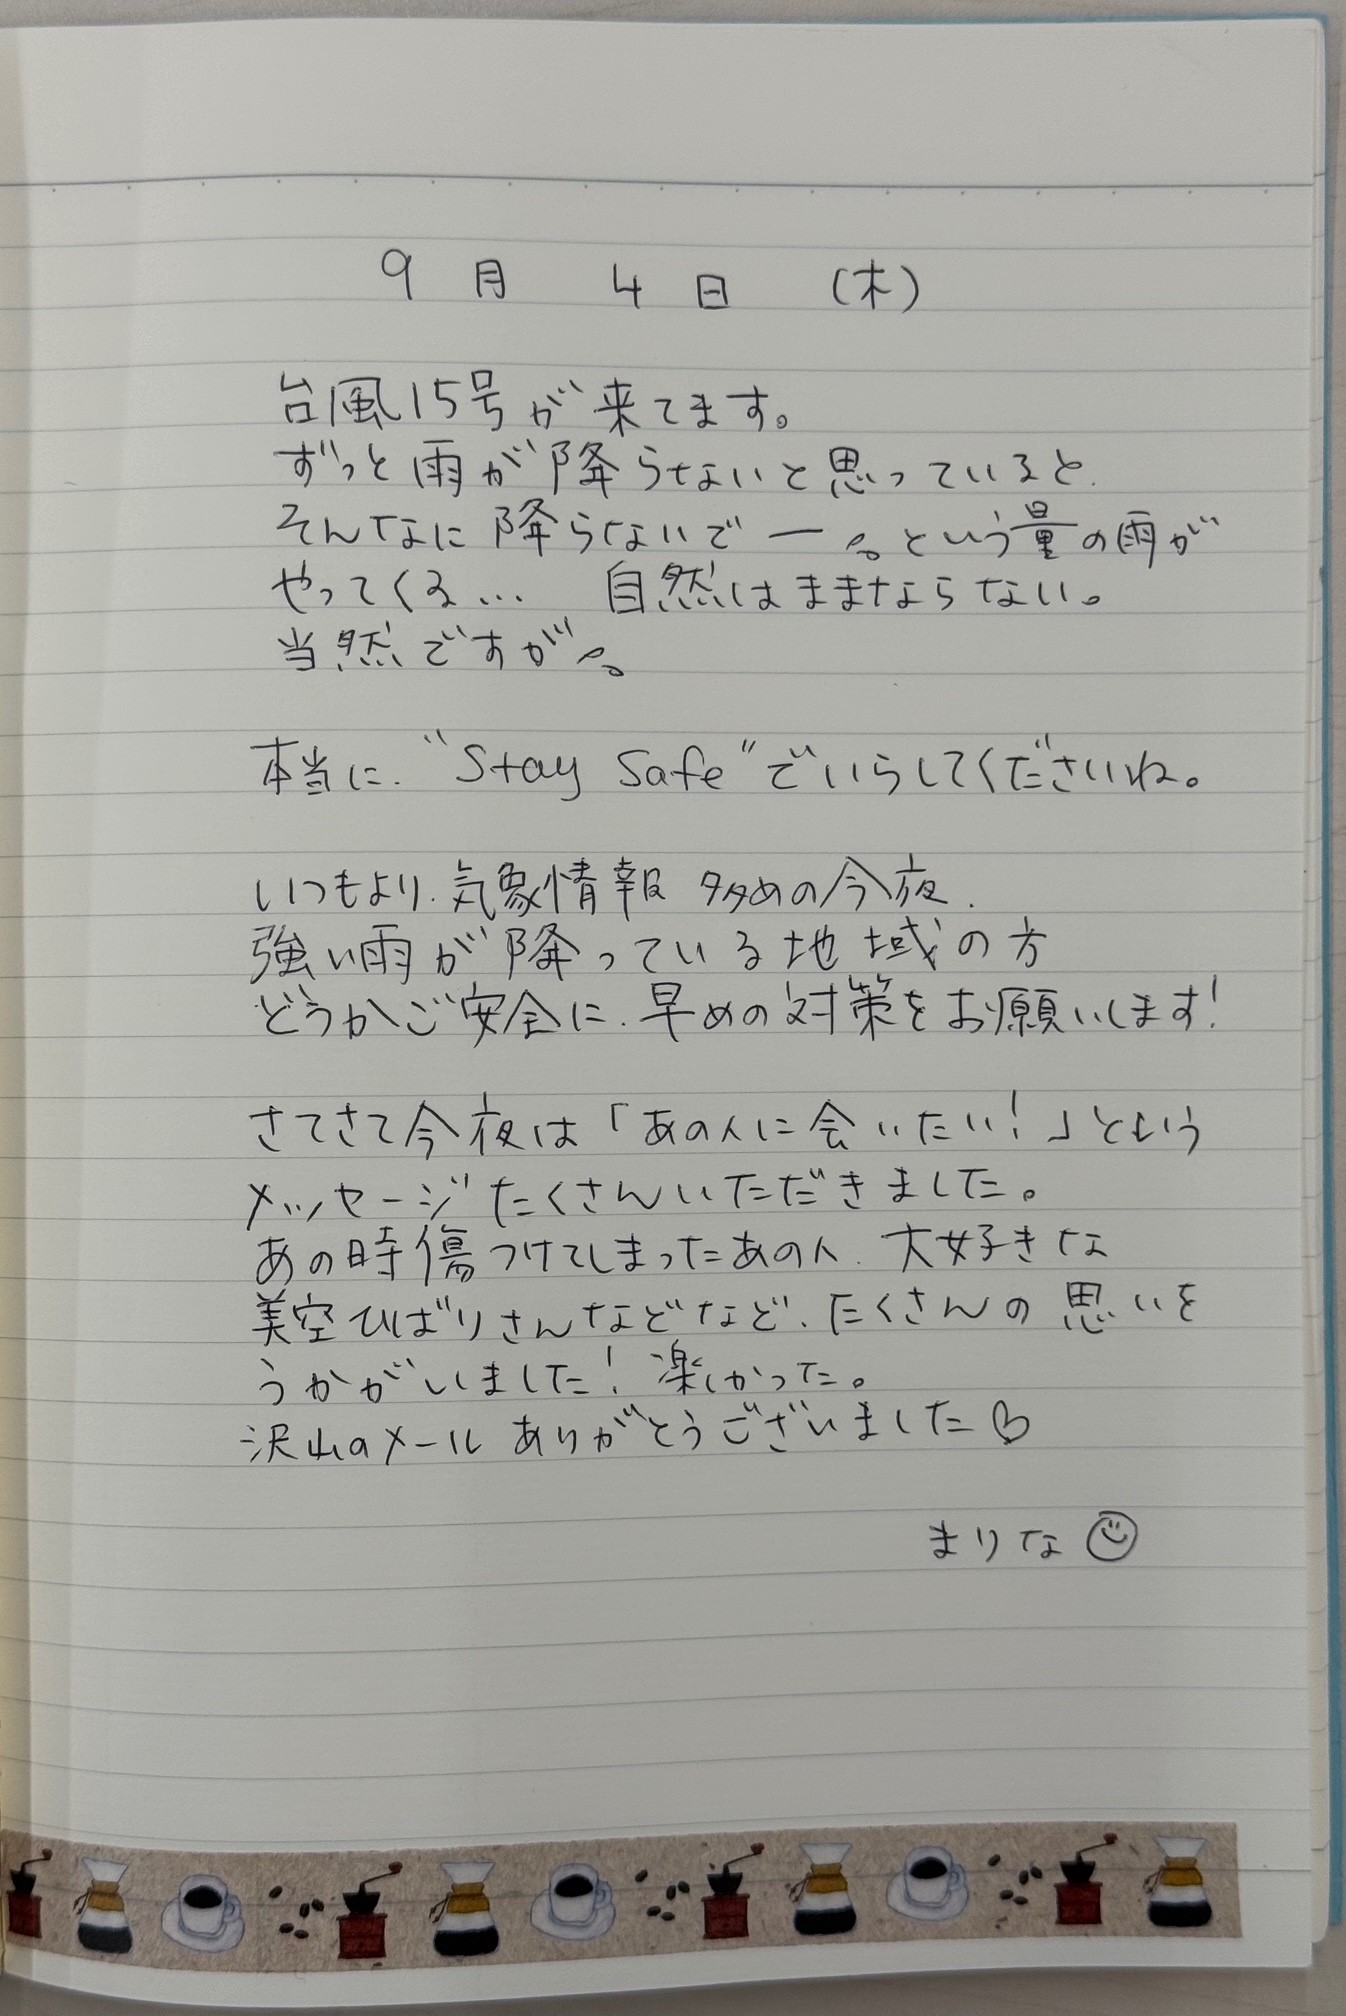 9月 4日 (木)
台風15号が来てます。
ずっと雨が降らないと思っていると、
そんなに降らないでー。という量の雨が
やってくる… 自然はままならない。
当然ですが。
本当に、“Stay Safe”でいらしてくださいね。
いつもより、気象情報 多めの今夜、
強い雨が降っている地域の方
どうかご安全に、早めの対策をお願いします!
さてさて今夜は「あの人に会いたい!」という
メッセージたくさんいただきました。
あの時傷つけてしまったあの人、大好きな
美空ひばりさんなどなど、たくさんの思いを
うかがいました! 楽しかった。
沢山のメール ありがとうございました♡
まりな☺